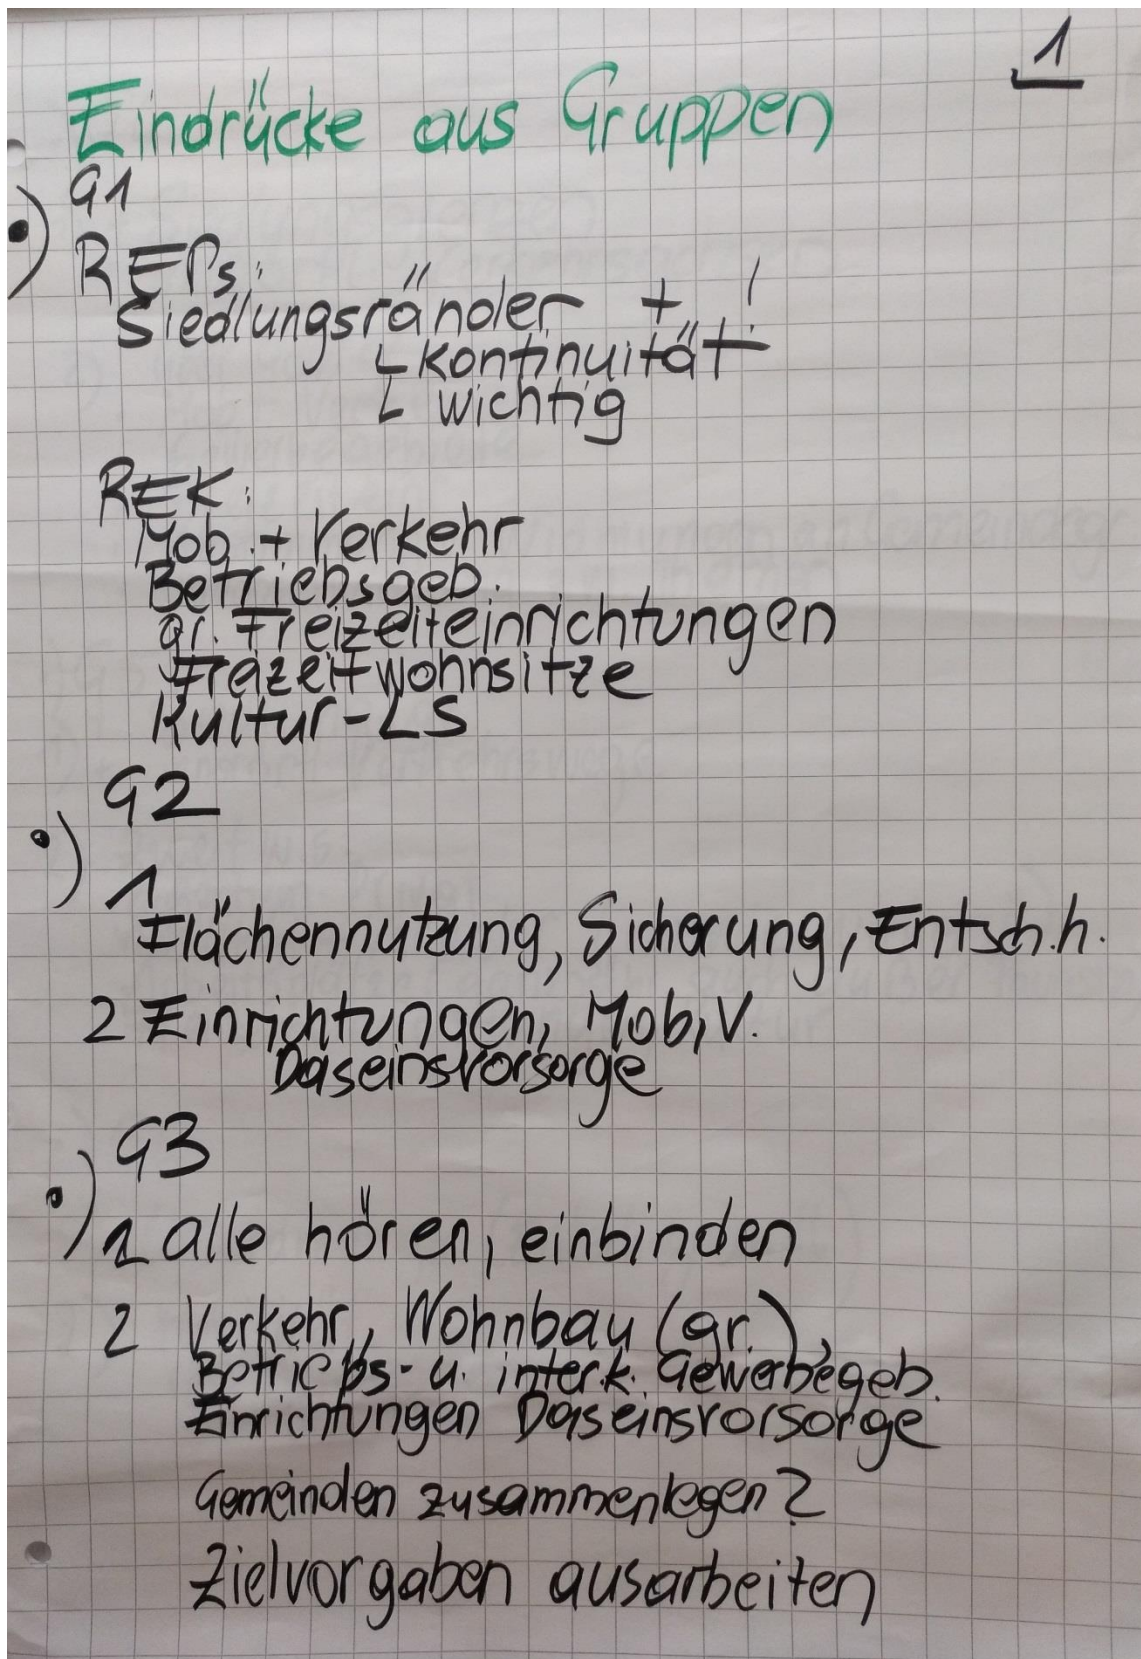 1
Eindrücke aus Gruppen
•) G1
REPs:
Siedlungsränder + !
└ kontinuität
└ wichtig
REK:
Mob. + Verkehr
Betriebsgeb.
gr. Freizeiteinrichtungen
Freizeitwohnsitze
Kultur-LS
•) G2
1
Flächennutzung, Sicherung, Entsch.h.
2 Einrichtungen, Mob, V.
Daseinsvorsorge
•) G3
1 alle hören, einbinden
2 Verkehr, Wohnbau (gr.),
Betriebs- u. interk. Gewerbegeb.
Einrichtungen Daseinsvorsorge
Gemeinden zusammenlegen?
Zielvorgaben ausarbeiten